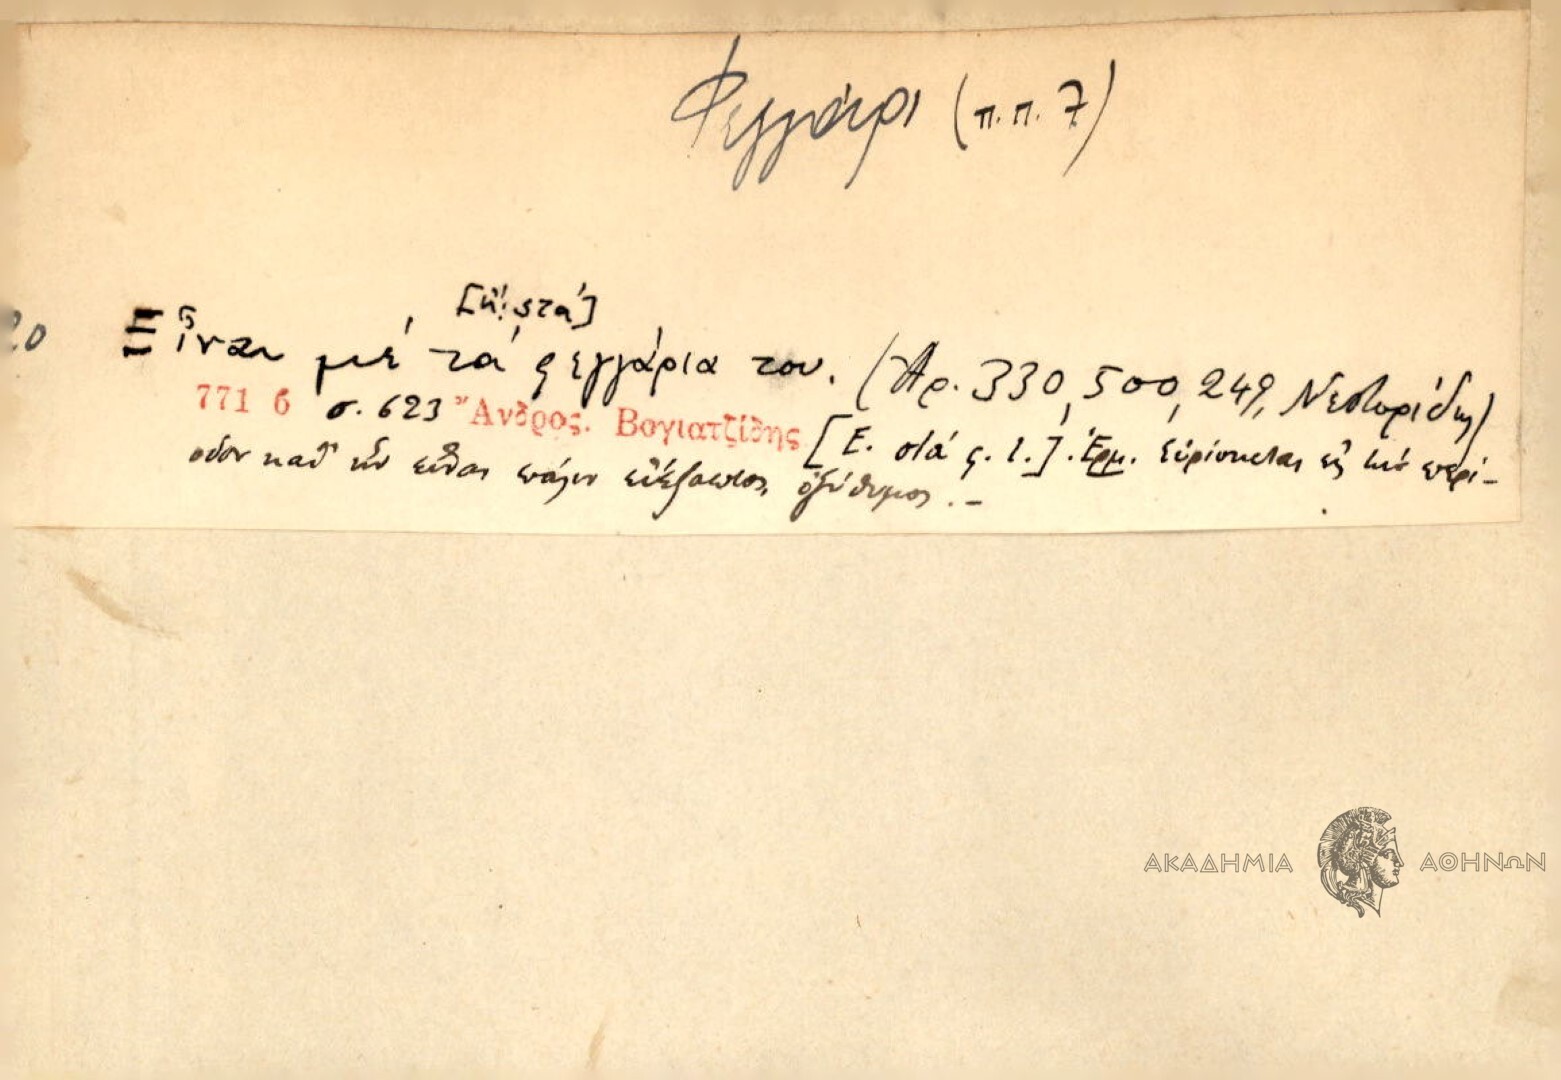 Φεγγάρι (π.π. 7)
[ἤ: στά]
20 Εἶναι μέ τά φεγγάρια του. (Ἀρ. 330, 500, 249, Νεστορίδης)
771 6 σ. 623 Ἄνδρος. Βογιατζίδης [Ε. στά φ. τ.]. Ἑρμ. Εὑρίσκεται εἰς τήν περί-
οδον καθ' ἥν εἶναι πάλιν εὐέξαπτος, ὀξύθυμος.-
ΑΚΑΔΗΜΙΑ ΑΘΗΝΩΝ